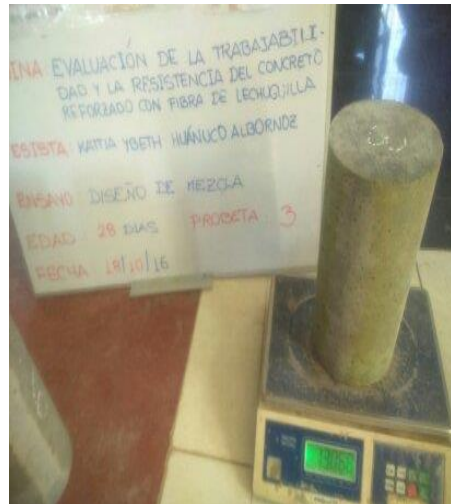 INA: EVALUACIÓN DE LA TRABAJABILI-
DAD Y LA RESISTENCIA DEL CONCRETO
REFORZADO CON FIBRA DE LECHUGUILLA
ESISTA: KATTIA YBETH HUÁNUCO ALBORNOZ
ENSAYO: DISEÑO DE MEZCLA
EDAD: 28 DIAS PROBETA: 3
FECHA: 18/10/16